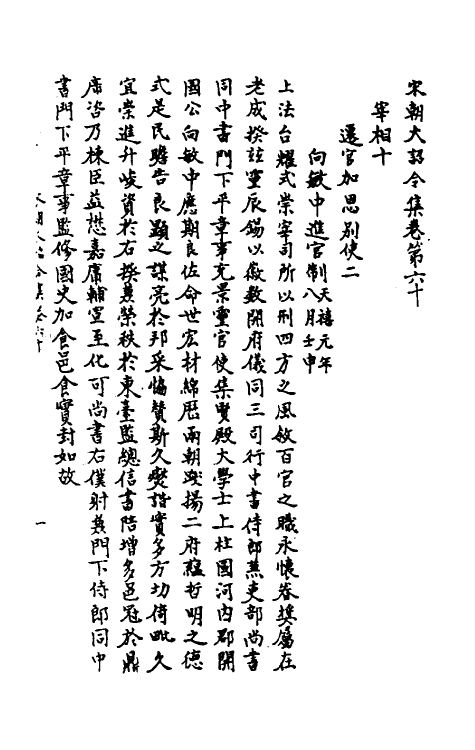 宋朝大詔令集卷第六十
宰相十
遷官加恩别使二
向敏中進官制天禧元年八月壬申
上法台耀式崇宰司所以刑四方之風敘百官之職永懷眷奬屬在
老成揆玆靈辰錫以徽數開府儀同三司行中書侍郎兼吏部尚書
同中書門下平章事充景靈宮使集賢殿大學士上柱國河内郡開
國公向敏中應期良佐命世宏材綿歷兩朝踐揚二府蘊哲明之德
式是民瞻告良顯之謀亮於邦采恊贊斯久燮諧實多方切倚毗久
宜崇進升峻資於右揆兼榮秩於東臺監總信書陪增多邑冠於鼎
席咨乃棟臣益懋嘉庸輔宣至化可尚書右僕射兼門下侍郎同中
書門下平章事監修國史加食邑食實封如故
宋朝大詔令集卷六十
一